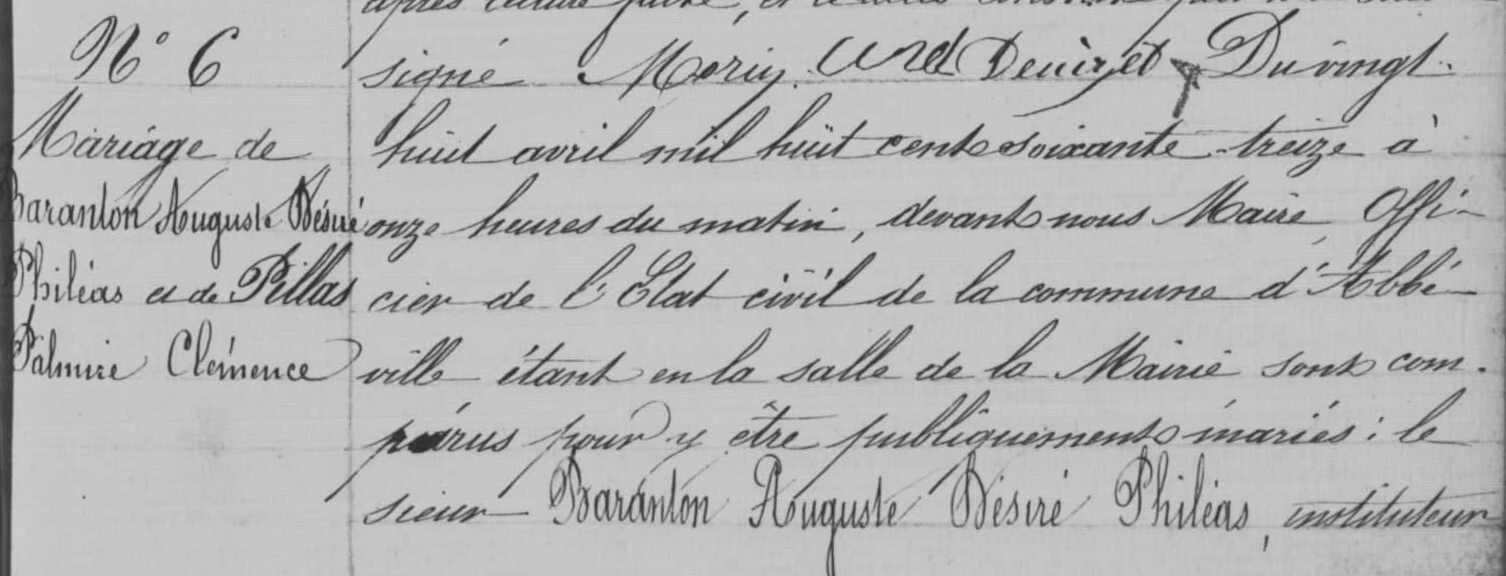 N° 6
Mariage de
Baranton Auguste Désiré
Philéas et de Pillas
Palmire Clémence
après lecture faite, et
signé Du vingt
huit avril mil huit cent soixante treize à
onze heures du matin, devant nous Maire, Offi-
cier de l'État civil de la commune d'Abbé-
ville étant en la salle de la Mairie sont com-
parus pour y être publiquement mariés : le
sieur Baranton Auguste Désiré Philéas, instituteur